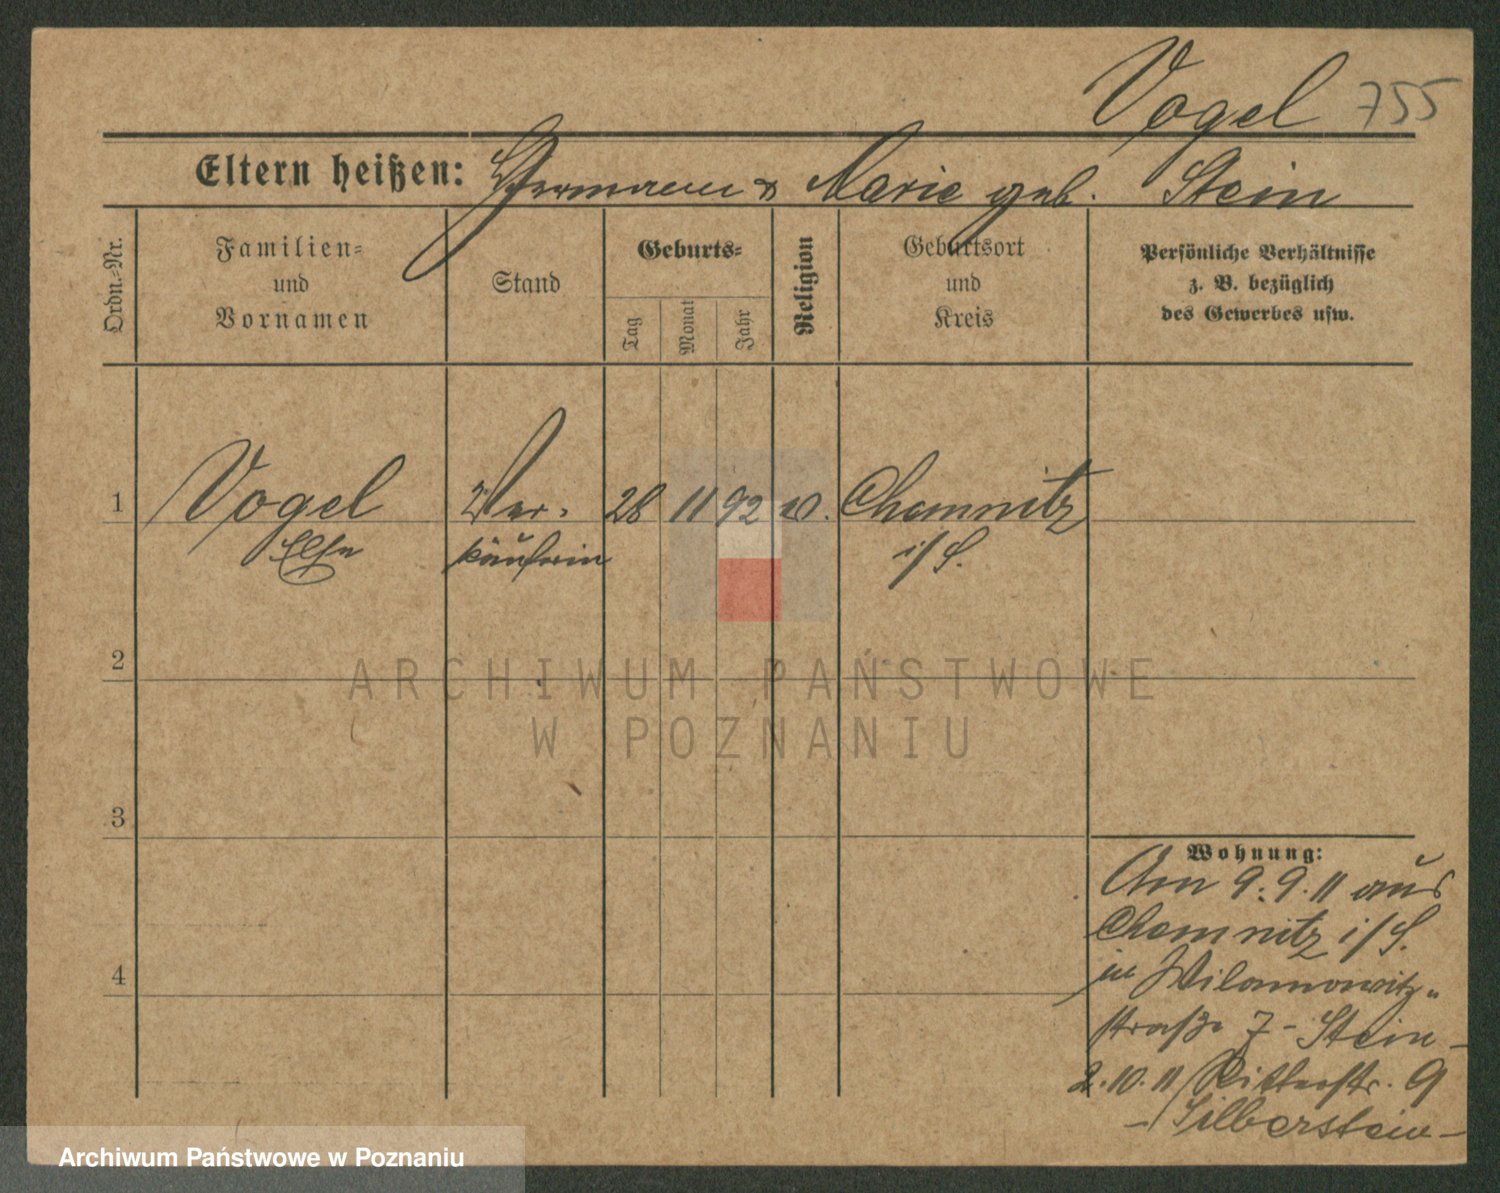 Vogel 755
Eltern heißen: Hermann & Marie geb. Stein
Ordn.-Nr.
Familien-
und
Vornamen
Stand
Geburts-
Tag
Monat
Jahr
Religion
Geburtsort
und
Kreis
Persönliche Verhältnisse
z. B. bezüglich
des Gewerbes usw.
1 Vogel Ver- 28 11 92 Chemnitz
Else käuferin i/S.
2
3
4
Wohnung:
Am 9.9.11 aus
Chemnitz i/S.
in Wilamowitz-
straße 7 - Stein -
2.10.11 Ritterstr. 9
- Silberstein -
ARCHIWUM PAŃSTWOWE
W POZNANIU
Archiwum Państwowe w Poznaniu